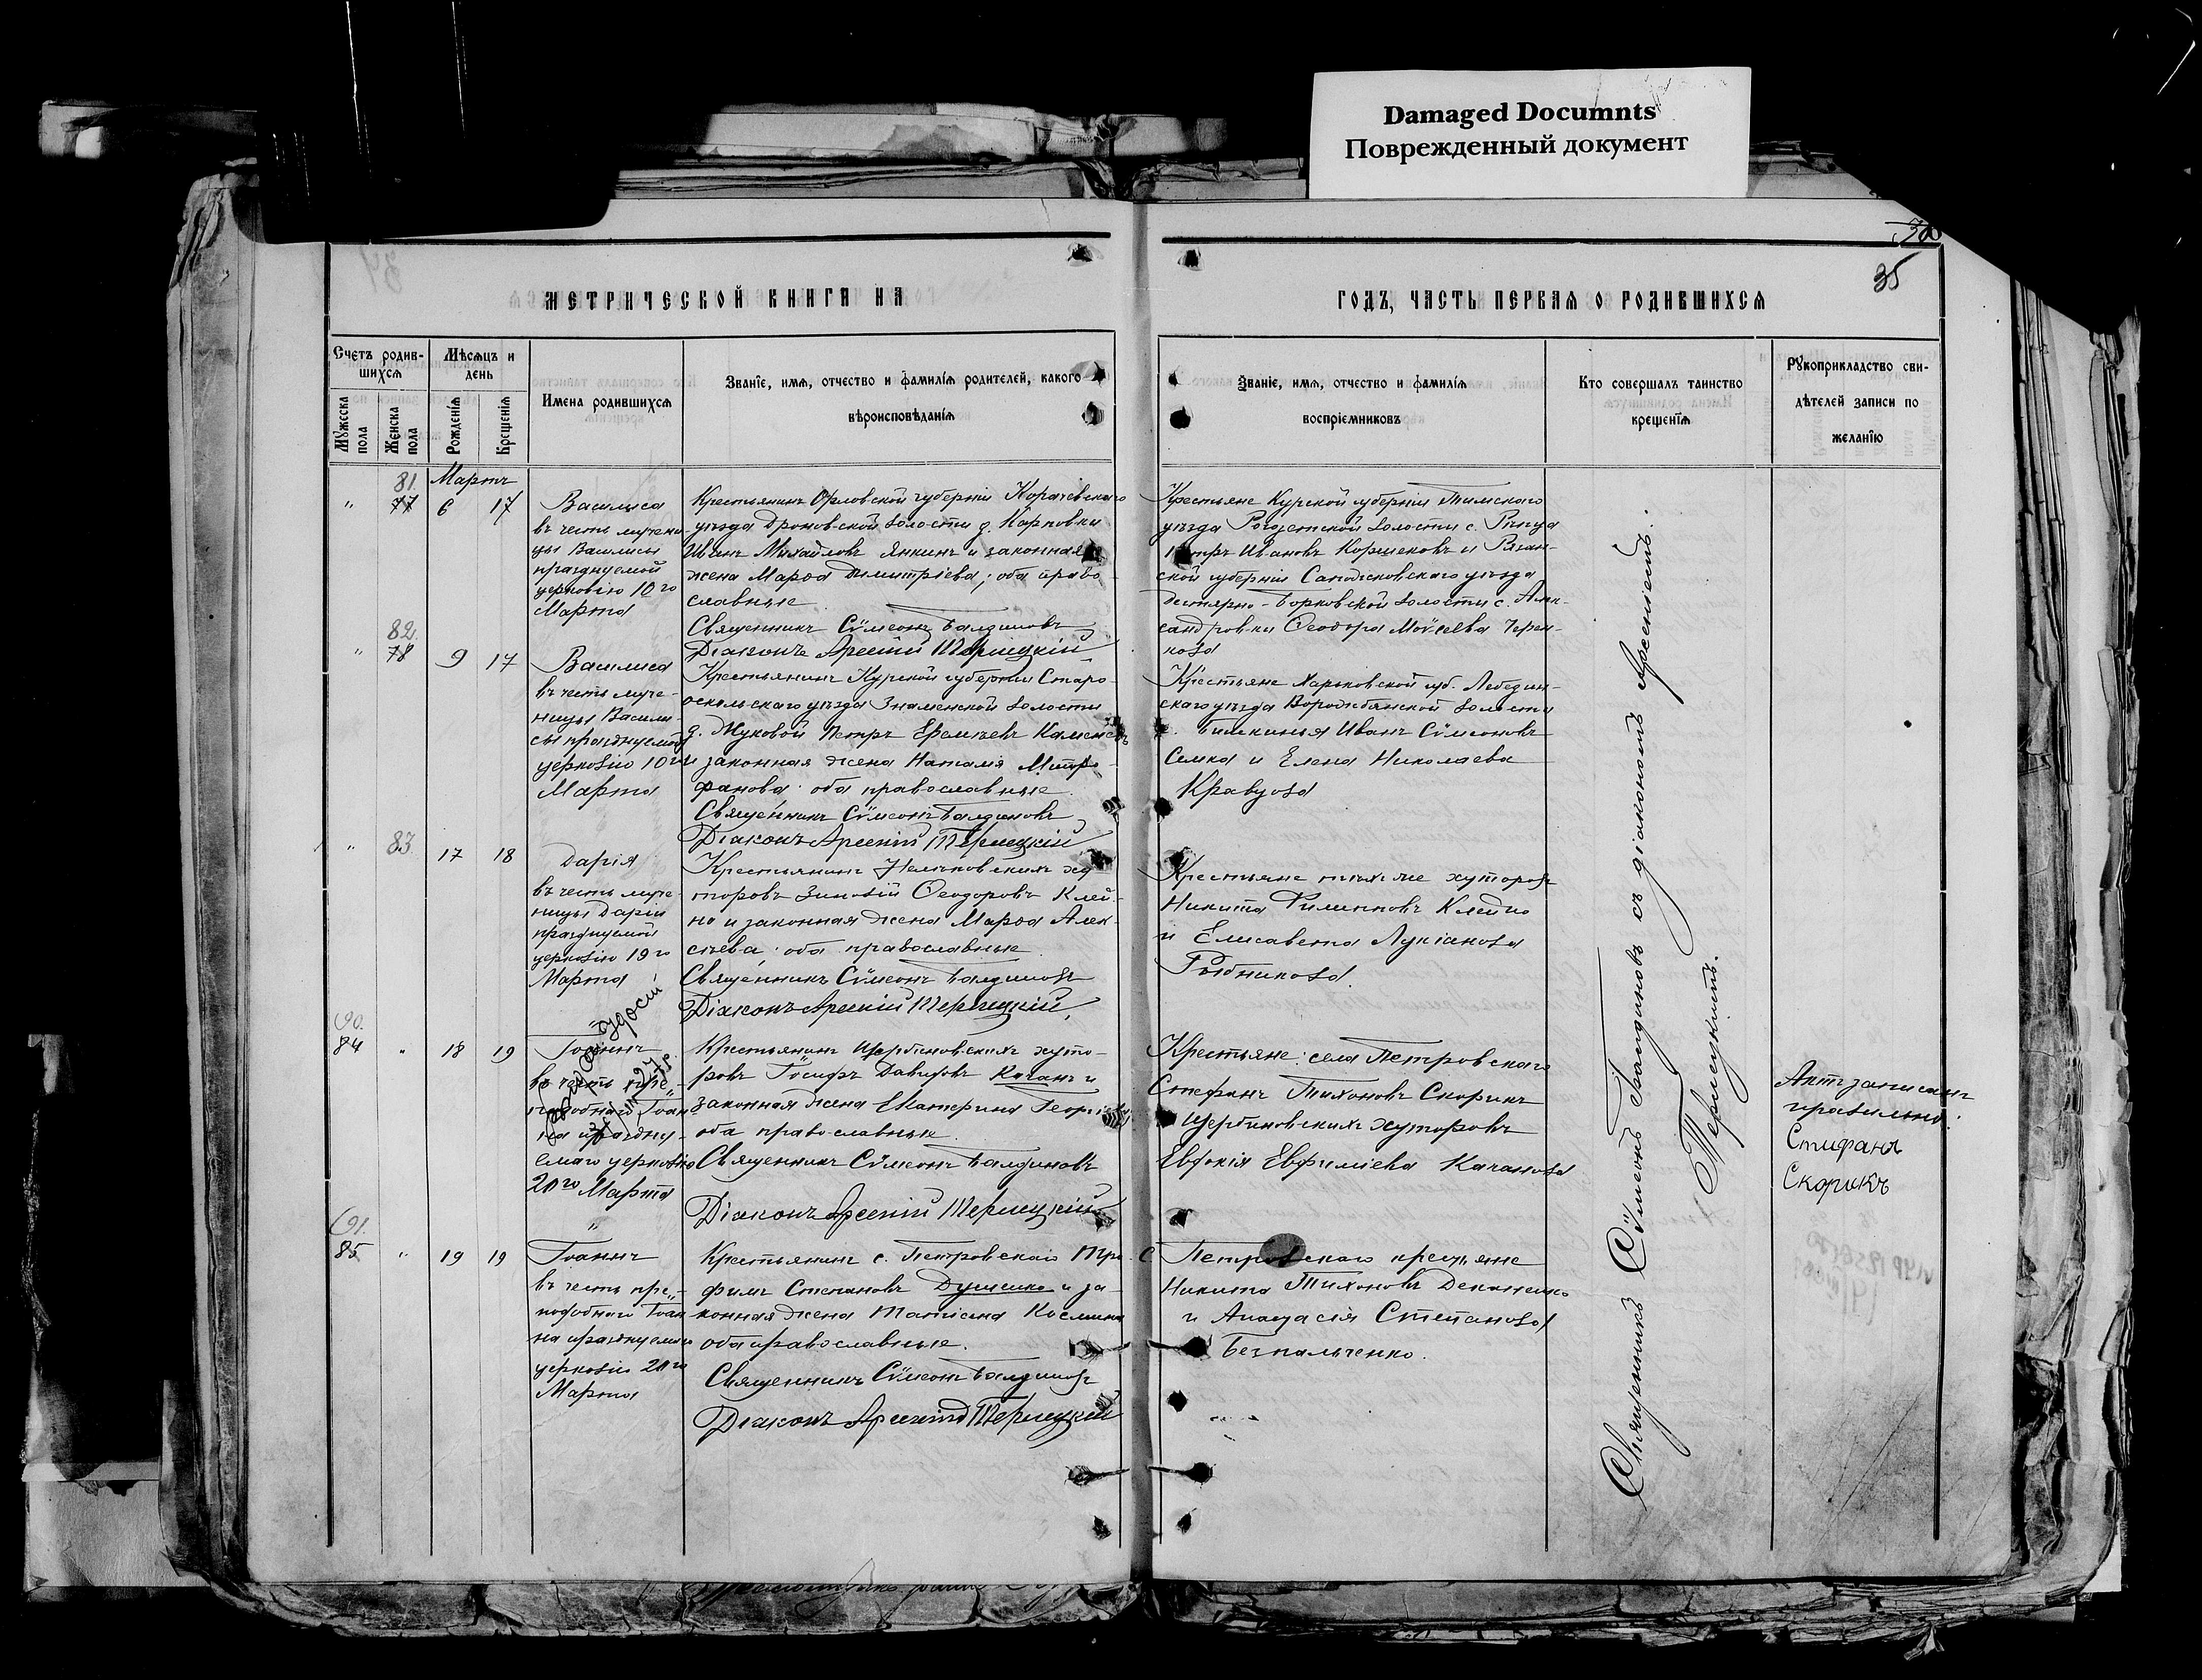 Damaged Documnts
Поврежденный документ
35
МЕТРИЧЕСКОЙ КНИГИ НА
ГОДЪ, ЧАСТЬ ПЕРВАЯ О РОДИВШИХСЯ
Счетъ родив-
шихся
Мѣсяцъ и
день
Мужеска
пола
Женска
пола
Рожденія
Крещенія
Имена родившихся
Званіе, имя, отчество и фамилія родителей, какого
вѣроисповѣданія
Званіе, имя, отчество и фамилія
воспріемниковъ
Кто совершалъ таинство
крещенія
Рукоприкладство сви-
дѣтелей записи по
желанію
81. Мартъ
" 77 6 17
Василиса
въ честь мучени
цы Василисы
празднуемой
церковію 10го
Марта
Крестьянинъ Орловской губерніи Корачевскаго
уѣзда Дроновской волости д. Карповки
Иванъ Михайловъ Янкинъ и законная
жена Марѳа Димитріева; оба право
славные
Священникъ Сѵмеонъ Балдиновъ
Діаконъ Арсеній Терлецкій
Крестьяне Курской губерніи Тимскаго
уѣзда волости с.
Петръ Ивановъ и Рязан-
ской губерніи Сапожковскаго уѣзда
волости с. Алек-
сандровки Ѳеодора Моѵсеева Черен-
кова
82.
" 78 9 17
Василиса
въ честь муче-
ницы Васили-
сы празднуемой
церковію 10го
Марта
Крестьянинъ Курской губерніи Старо-
оскольскаго уѣзда Знаменской волости
д. Жуковой Петръ Еремѣевъ
и законная жена Наталія Митро-
фанова оба православные.
Священникъ Сѵмеонъ Балдиновъ
Діаконъ Арсеній Терлецкій
Крестьяне Харьковской губ. Лебедин-
скаго уѣзда Ворожбянской волости
Иванъ Сѵмеоновъ
Семка и Елена Николаева
Кравцова
" 83 17 18
Дарія
въ честь муче-
ницы Даріи
празднуемой
церковію 19го
Марта
Крестьянинъ Нелѣповскихъ ху
торовъ Зиновій Ѳеодоровъ Клей-
но и законная жена Марѳа Алек-
сѣева: оба православные
Священникъ Сѵмеонъ Балдиновъ
Діаконъ Арсеній Терлецкій
Крестьяне тѣхъ же хуторовъ
Никита Филипповъ Клейно
и Елисавета Лукіанова
Рыбникова.
90.
84 " 18 19
Іоаннъ
въ честь пре-
подобнаго Іоан
на праздну-
емаго церковію
20го Марта
Крестьянинъ Щербиновскихъ хуто-
ровъ Іосифъ Давидовъ Качанъ и
законная жена Екатерина
оба православные.
Священникъ Сѵмеонъ Балдиновъ
Діаконъ Арсеній Терлецкій
Крестьяне: села Петровскаго
Стефанъ Тихоновъ Скорикъ
и Щербиновскихъ хуторовъ
Евдокія Евфиміева Качанова
Актъ записанъ
правильно:
Стифанъ
Скорикъ
91.
85 " 19 19
Іоаннъ
въ честь пре-
подобнаго Іоан
на празднуемаго
церковію 20го
Марта
Крестьянинъ с. Петровскаго Тро-
фимъ Стефановъ Душенко и за-
конная жена Татіана Космина
оба православные.
Священникъ Сѵмеонъ Балдиновъ
Діаконъ Арсеній Терлецкій
С Петровскаго крестьяне
Никита Тихоновъ Деканенко
и Анастасія Степанова
Безпальченко.
Священникъ Сѵмеонъ Балдиновъ съ діакономъ Арсеніемъ
Терлецкимъ.